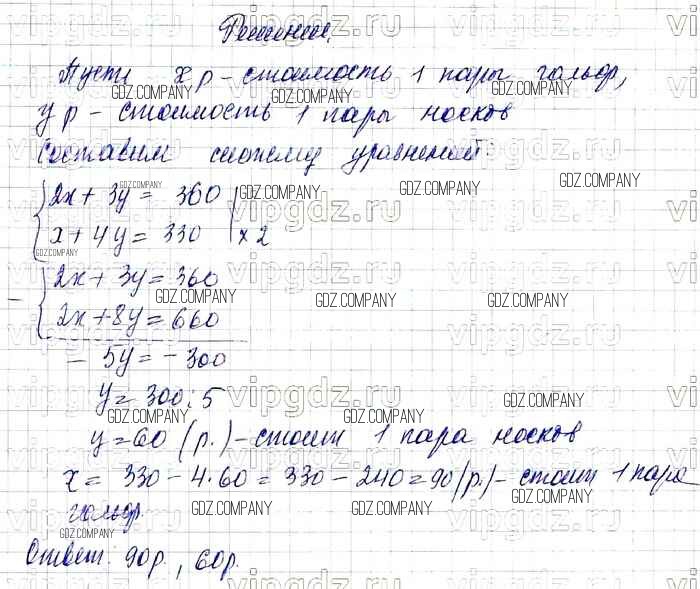 Решение.
Пусть х р – стоимость 1 пары гольф,
у р – стоимость 1 пары носков
Составим систему уравнений:
2х + 3у = 360
х + 4у = 330 | × 2
2х + 3у = 360
2х + 8у = 660
– 5у = – 300
у = 300 : 5
у = 60 (р.) – стоит 1 пара носков
х = 330 – 4 · 60 = 330 – 240 = 90 (р.) – стоит 1 пара
гольф.
Ответ. 90р., 60р.
vipgdz.ru
GDZ.COMPANY